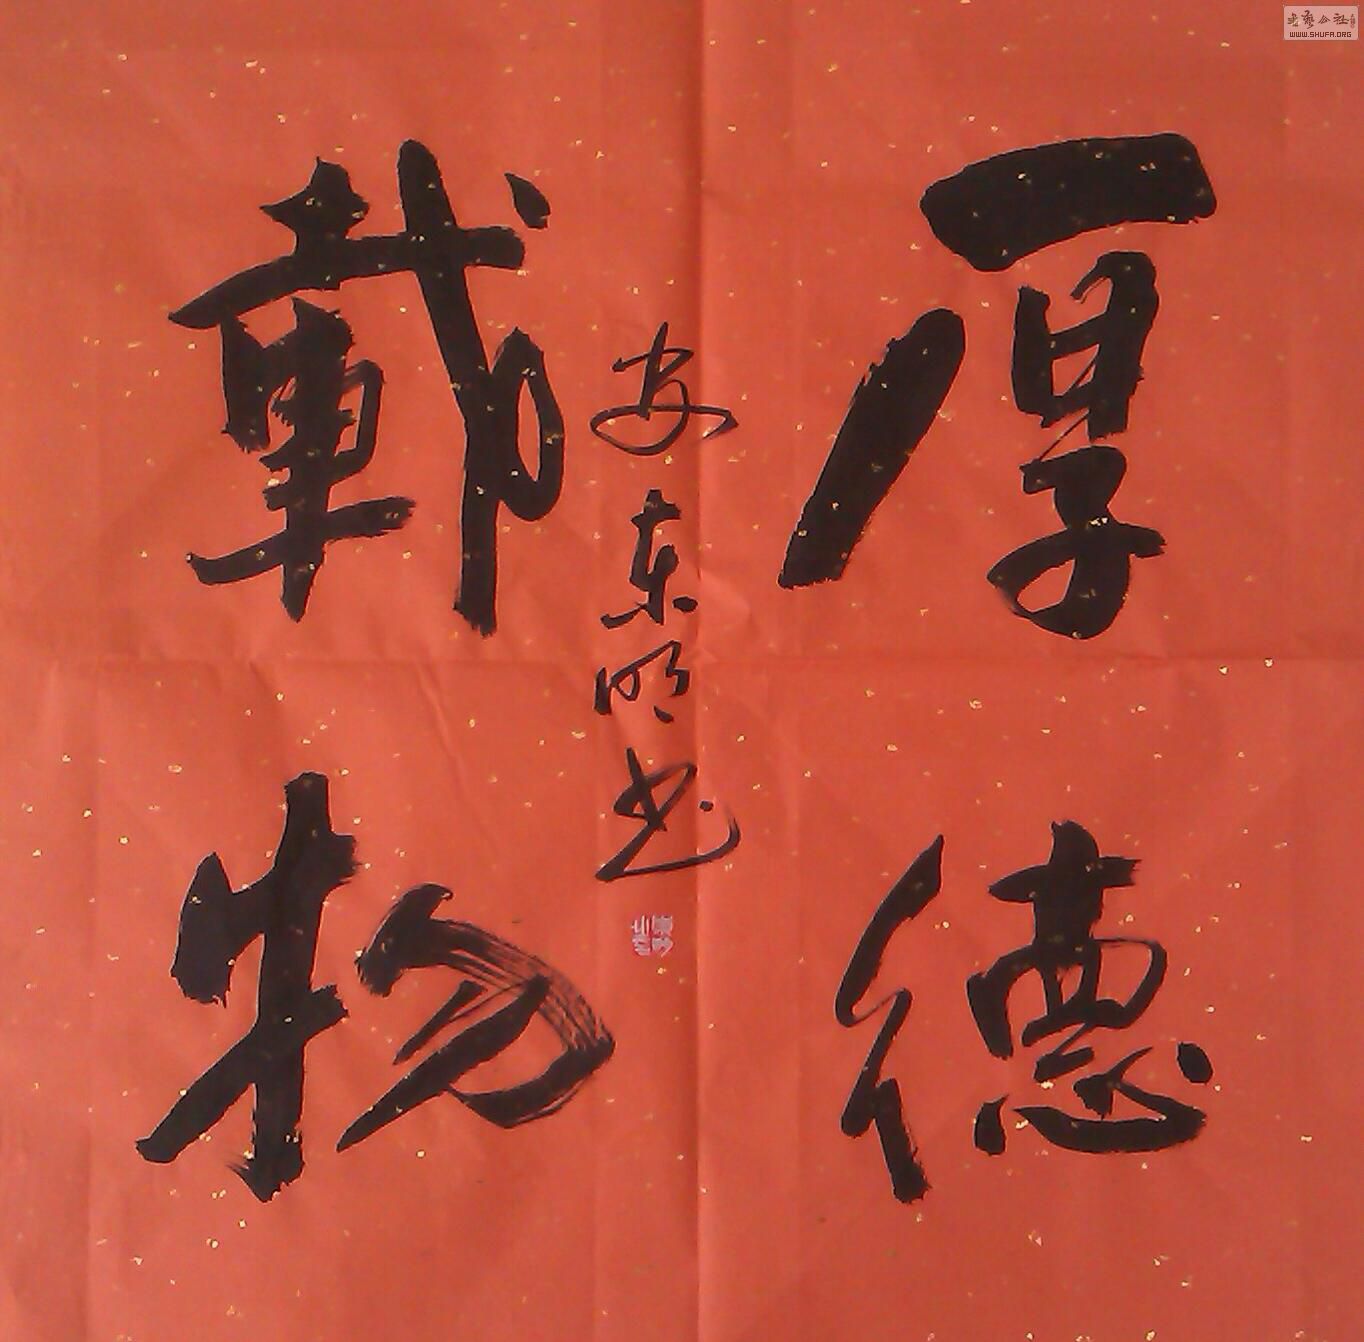 厚德
載物
安东明书
书艺公社
WWW.SHUFA.ORG